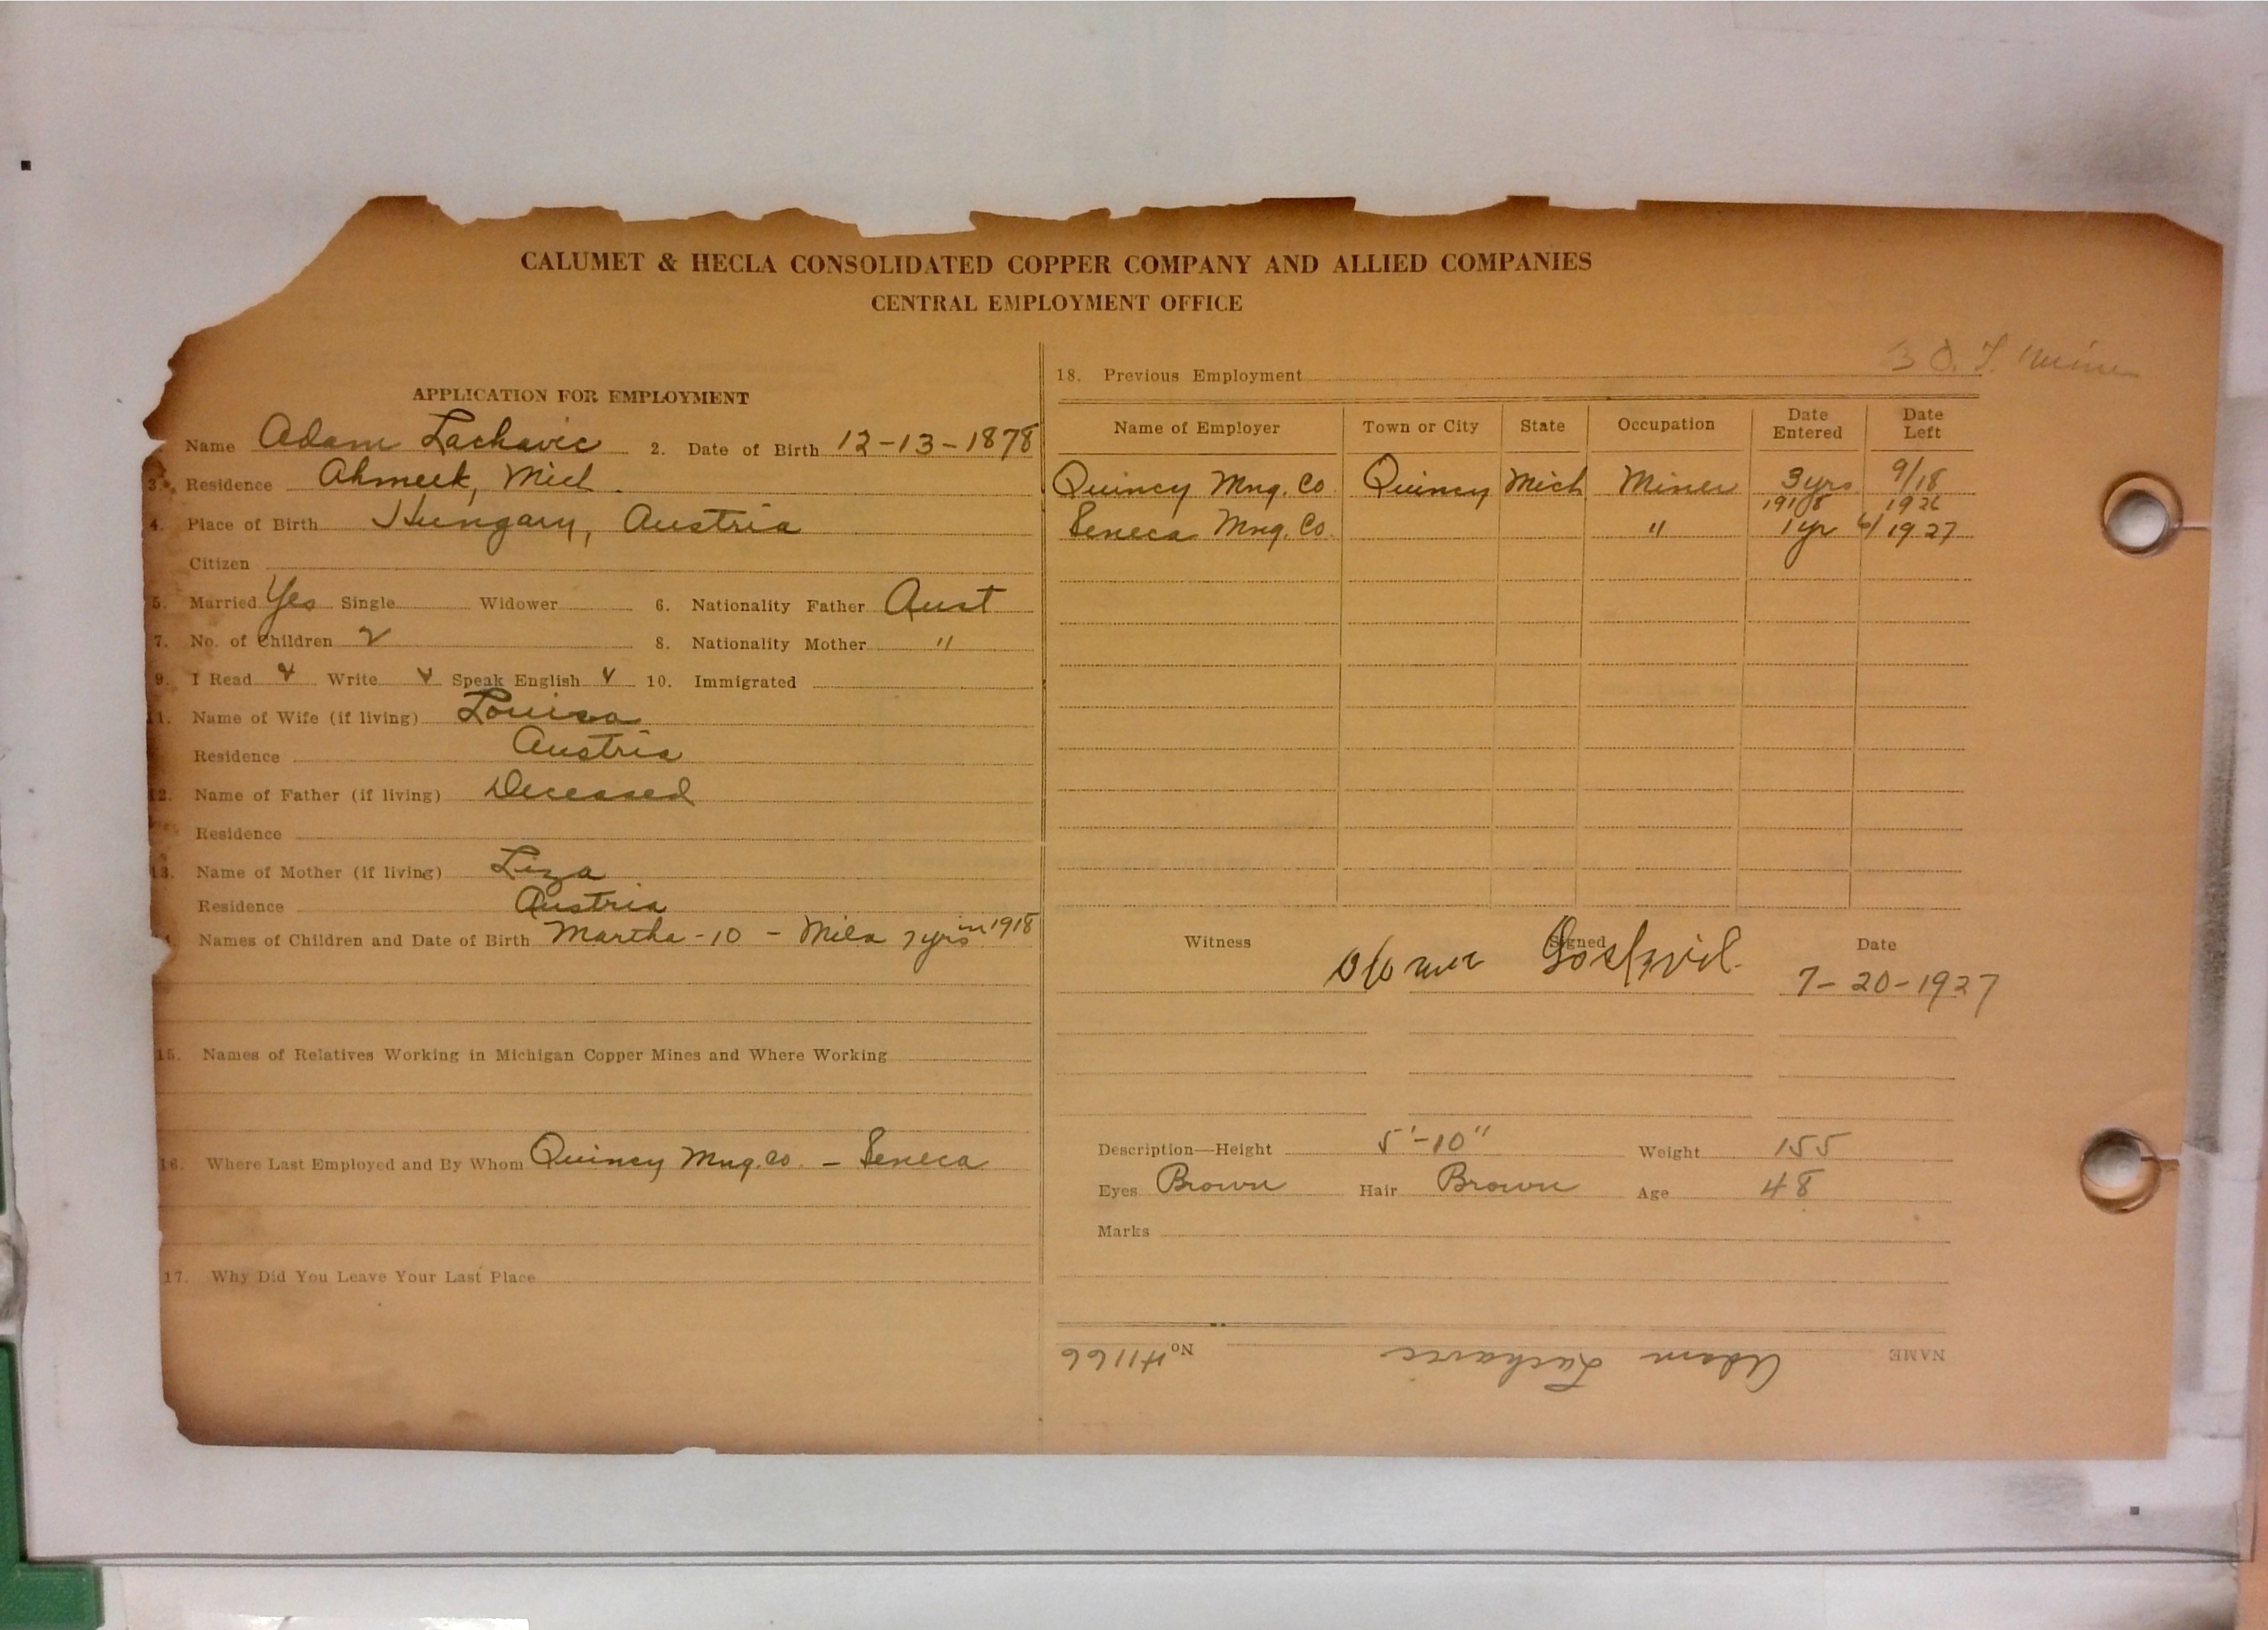 CALUMET & HECLA CONSOLIDATED COPPER COMPANY AND ALLIED COMPANIES
CENTRAL EMPLOYMENT OFFICE
APPLICATION FOR EMPLOYMENT
Name Adam Lachavic 2. Date of Birth 12-13-1878
3. Residence Ahmeek, Mich.
4. Place of Birth Hungary, Austria
Citizen
5. Married Yes Single Widower 6. Nationality Father Aust
7. No. of Children 2 8. Nationality Mother "
9. I Read ✓ Write ✓ Speak English ✓ 10. Immigrated
11. Name of Wife (if living) Louisa
Residence Austria
12. Name of Father (if living) Deceased
Residence
13. Name of Mother (if living) Liza
Residence Austria
Names of Children and Date of Birth Martha-10 - Mila 7yrs in 1918
15. Names of Relatives Working in Michigan Copper Mines and Where Working
16. Where Last Employed and By Whom Quincy Mng. Co. - Seneca
17. Why Did You Leave Your Last Place
Miner
18. Previous Employment
Name of Employer Town or City State Occupation Date Entered Date Left
Quincy Mng. Co. Quincy Mich Miner 3yrs 9/18
1918 1926
Seneca Mng. Co. " 1yr 6/1927
Witness Signed Date
7-20-1927
Description—Height 5'-10" Weight 155
Eyes Brown Hair Brown Age 48
Marks
NAME Adam Lachavic No. 41166